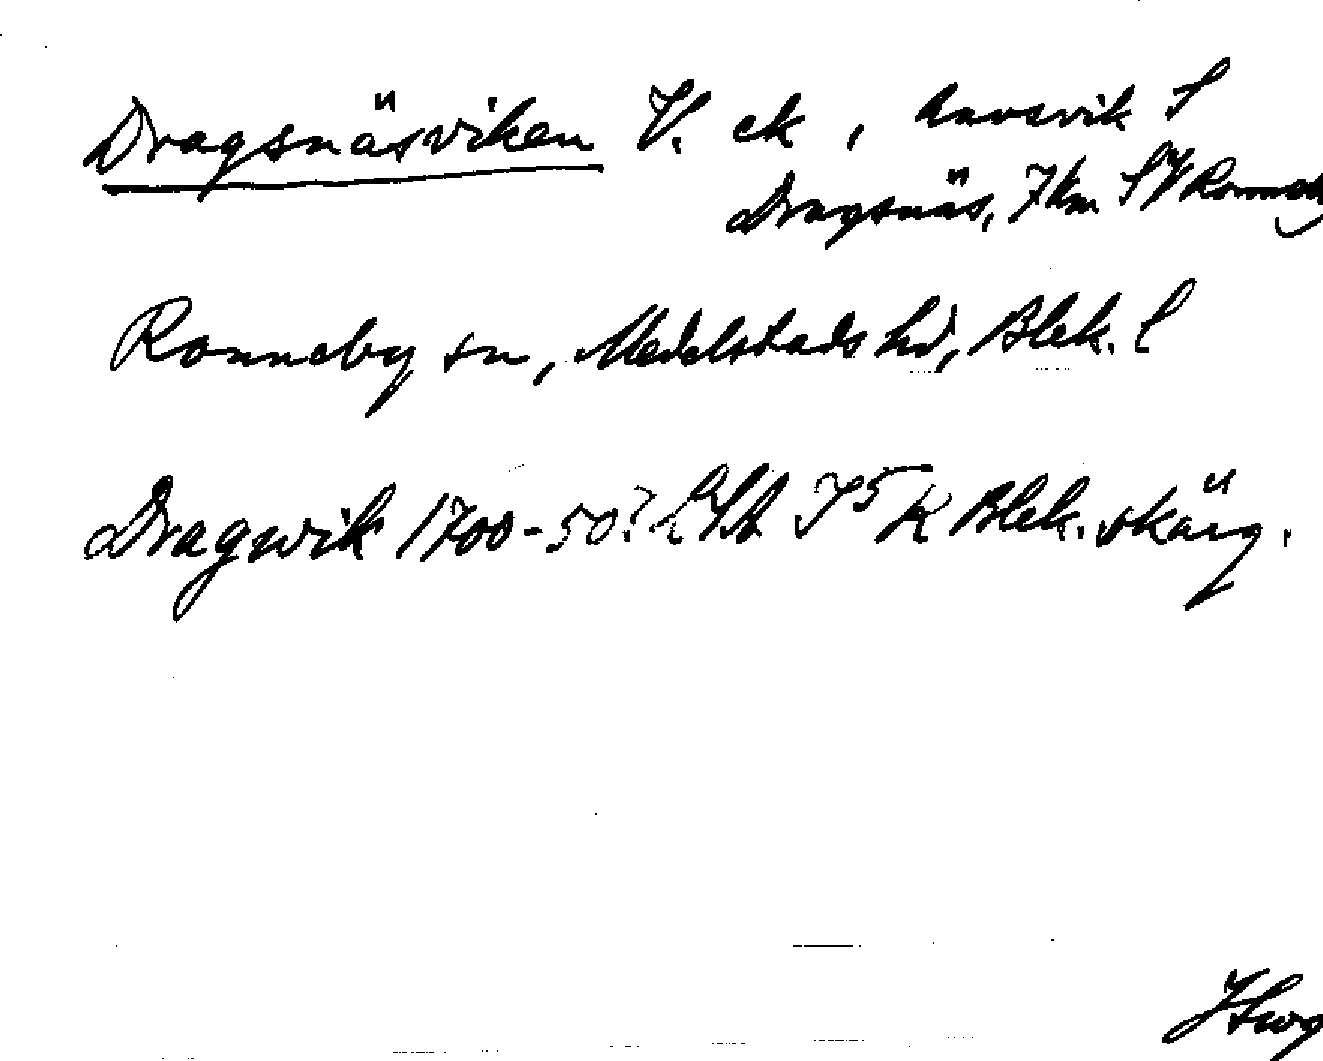 Dragsnäsviken V. ek, havsvik S
Dragsnäs, 7 km SV Ronneby
Ronneby sn, Medelstads hd, Blek. l
Dragwik 1700-50? Blek. skärg.